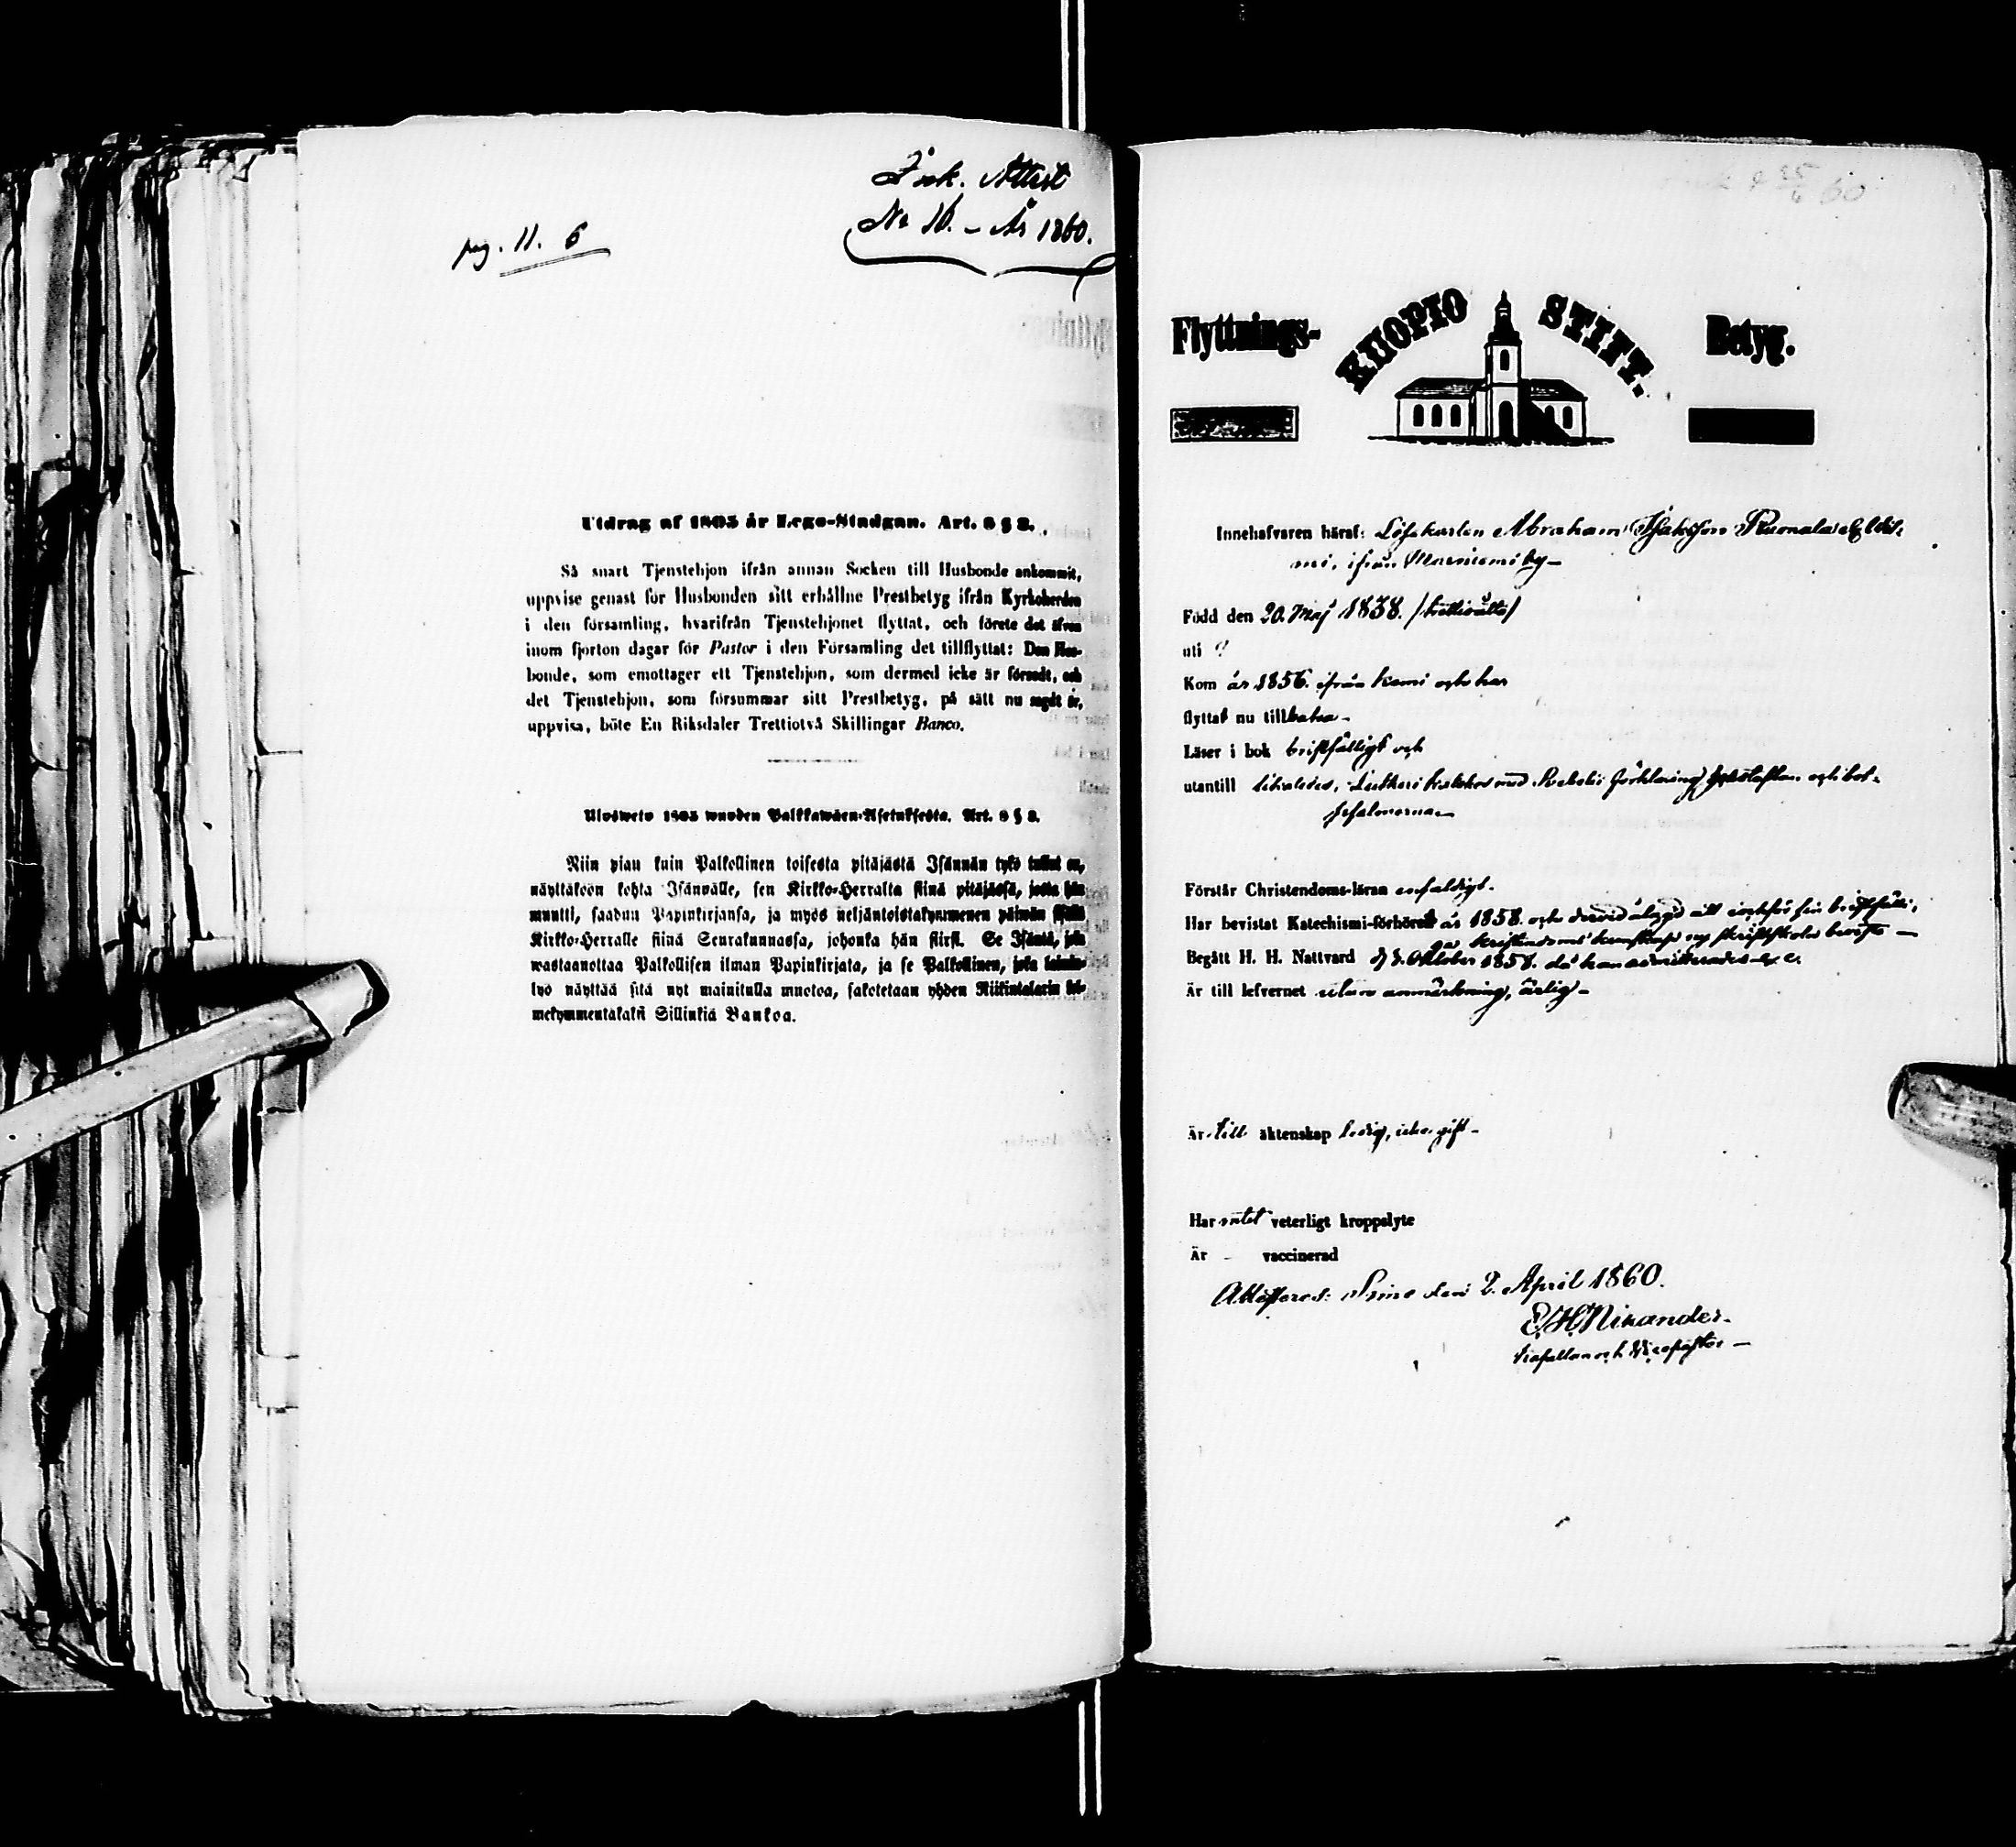 Ink. Attest
No 16. – År 1860.
pag. 11. 6
Utdrag af 1805 år Lego-Stadgan. Art. 8 § 8.
Så snart Tjenstehjon ifrån annan Socken till Husbonde ankommit,
uppvise genast för Husbonden sitt erhållne Prestbetyg ifrån Kyrkoherden
i den församling, hvarifrån Tjenstehjonet flyttat, och förete det äfven
inom fjorton dagar för Pastor i den Församling det tillflyttat: Den Hus-
bonde, som emottager ett Tjenstehjon, som dermed icke är försedt, och
det Tjenstehjon, som försummar sitt Prestbetyg, på sätt nu sagdt är,
uppvisa, böte En Riksdaler Trettiotvå Skillingar Banco.
Ulosweto 1805 wuoden Palkkawäen-Asetuksesta. Art. 8 § 8.
Niin pian kuin Palkollinen toisesta pitäjästä Isännän tykö tullut on,
näyttäköön kohta Isännälle, sen Kirkko-Herralta siinä pitäjässä, josta hän
muutti, saadun Papinkirjansa, ja myös neljäntoistakymmenen päiwän sisällä
Kirkko-Herralle siinä Seurakunnassa, johonka hän siirsi. Se Isäntä, joka
wastaanottaa Palkollisen ilman Papinkirjata, ja se Palkollinen, joka laimin-
lyö näyttää sitä nyt mainitulla muotoa, sakotetaan yhden Riikintalarin kol-
mekymmentäkaksi Sillinkiä Bankoa.
25/4 60
Flyttnings- KUOPIO STIFT. Betyg.
Innehafvaren häraf: Löskarlen Abraham Isaksson Ruonala
ifrån by –
Född den 20. Maj 1838.
uti ?
Kom år 1856. ifrån Kemi och har
flyttat nu tillbaka –
Läser i bok bristfälligt och
utantill likaledes, Lutheri med förklaring, och bot-
psalmerna –
Förstår Christendoms-läran enfaldigt.
Har bevistat Katechismi-förhöret år 1858. och dervid att
Begått H. H. Nattvard d 3. Oktober 1858. då han admitterades
Är till lefvernet utan anmärkning, ärlig –
Är till äktenskap ledig, icke gift –
Har intet veterligt kroppslyte
Är – vaccinerad
Attesteras: Simo den 2. April 1860.
E. H. Nikander.
Kapellan och Vicepastor –